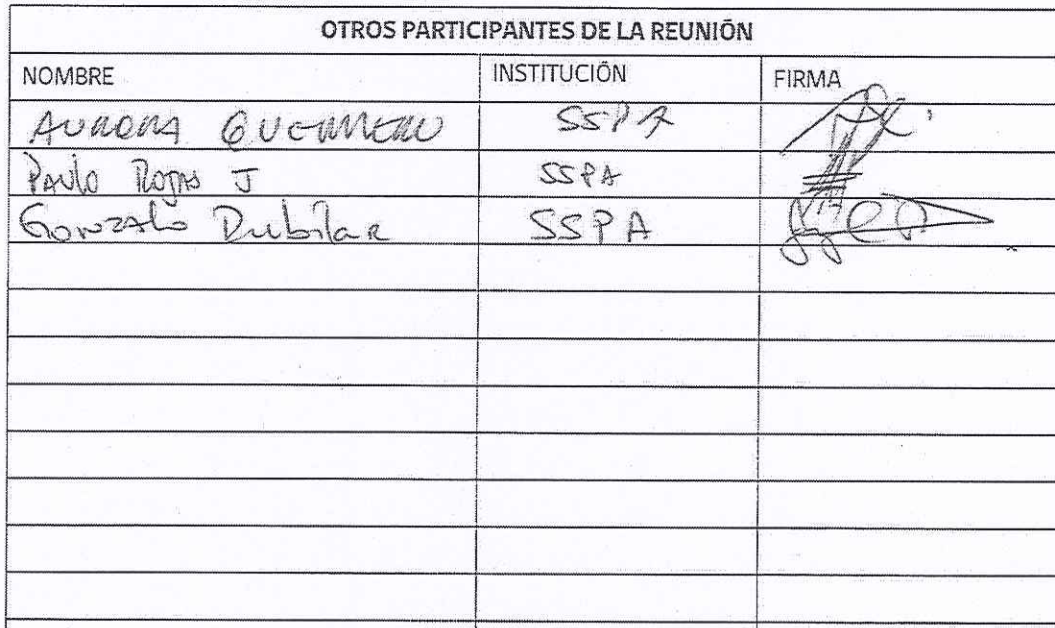 OTROS PARTICIPANTES DE LA REUNIÓN
NOMBRE INSTITUCIÓN FIRMA
AURORA GUERRERO SSPA
PAULO ROJAS J SSPA
Gonzalo Dubilar SSPA